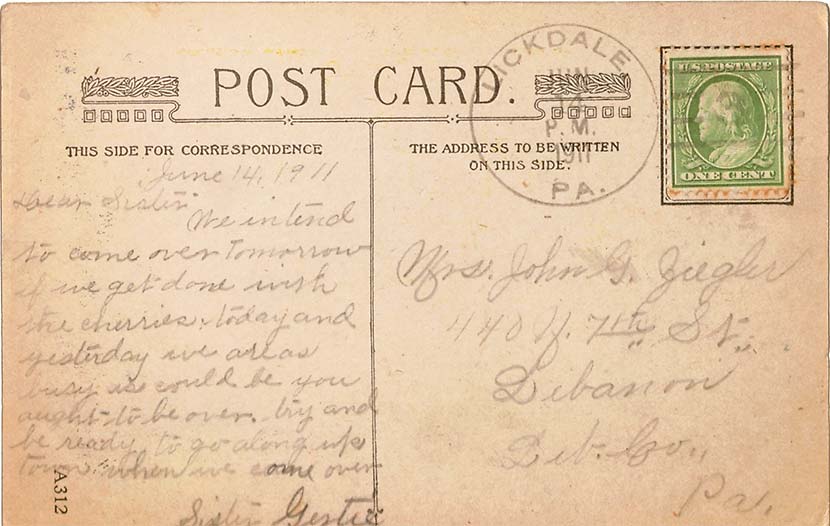 POST CARD.
THIS SIDE FOR CORRESPONDENCE
THE ADDRESS TO BE WRITTEN
ON THIS SIDE.
LICKDALE
JUN
14
P. M.
1911
PA.
U.S. POSTAGE
ONE CENT
June 14, 1911
Dear Sister
We intend
to come over Tomorrow
if we get done with
the cherries. today and
yesterday we are as
busy as could be you
aught to be over. try and
be ready to go along up
town when we come over
Sister Gertie
Mrs. John G. Ziegler
440 N. 7th St.,
Lebanon
Leb. Co.,
Pa.
A312